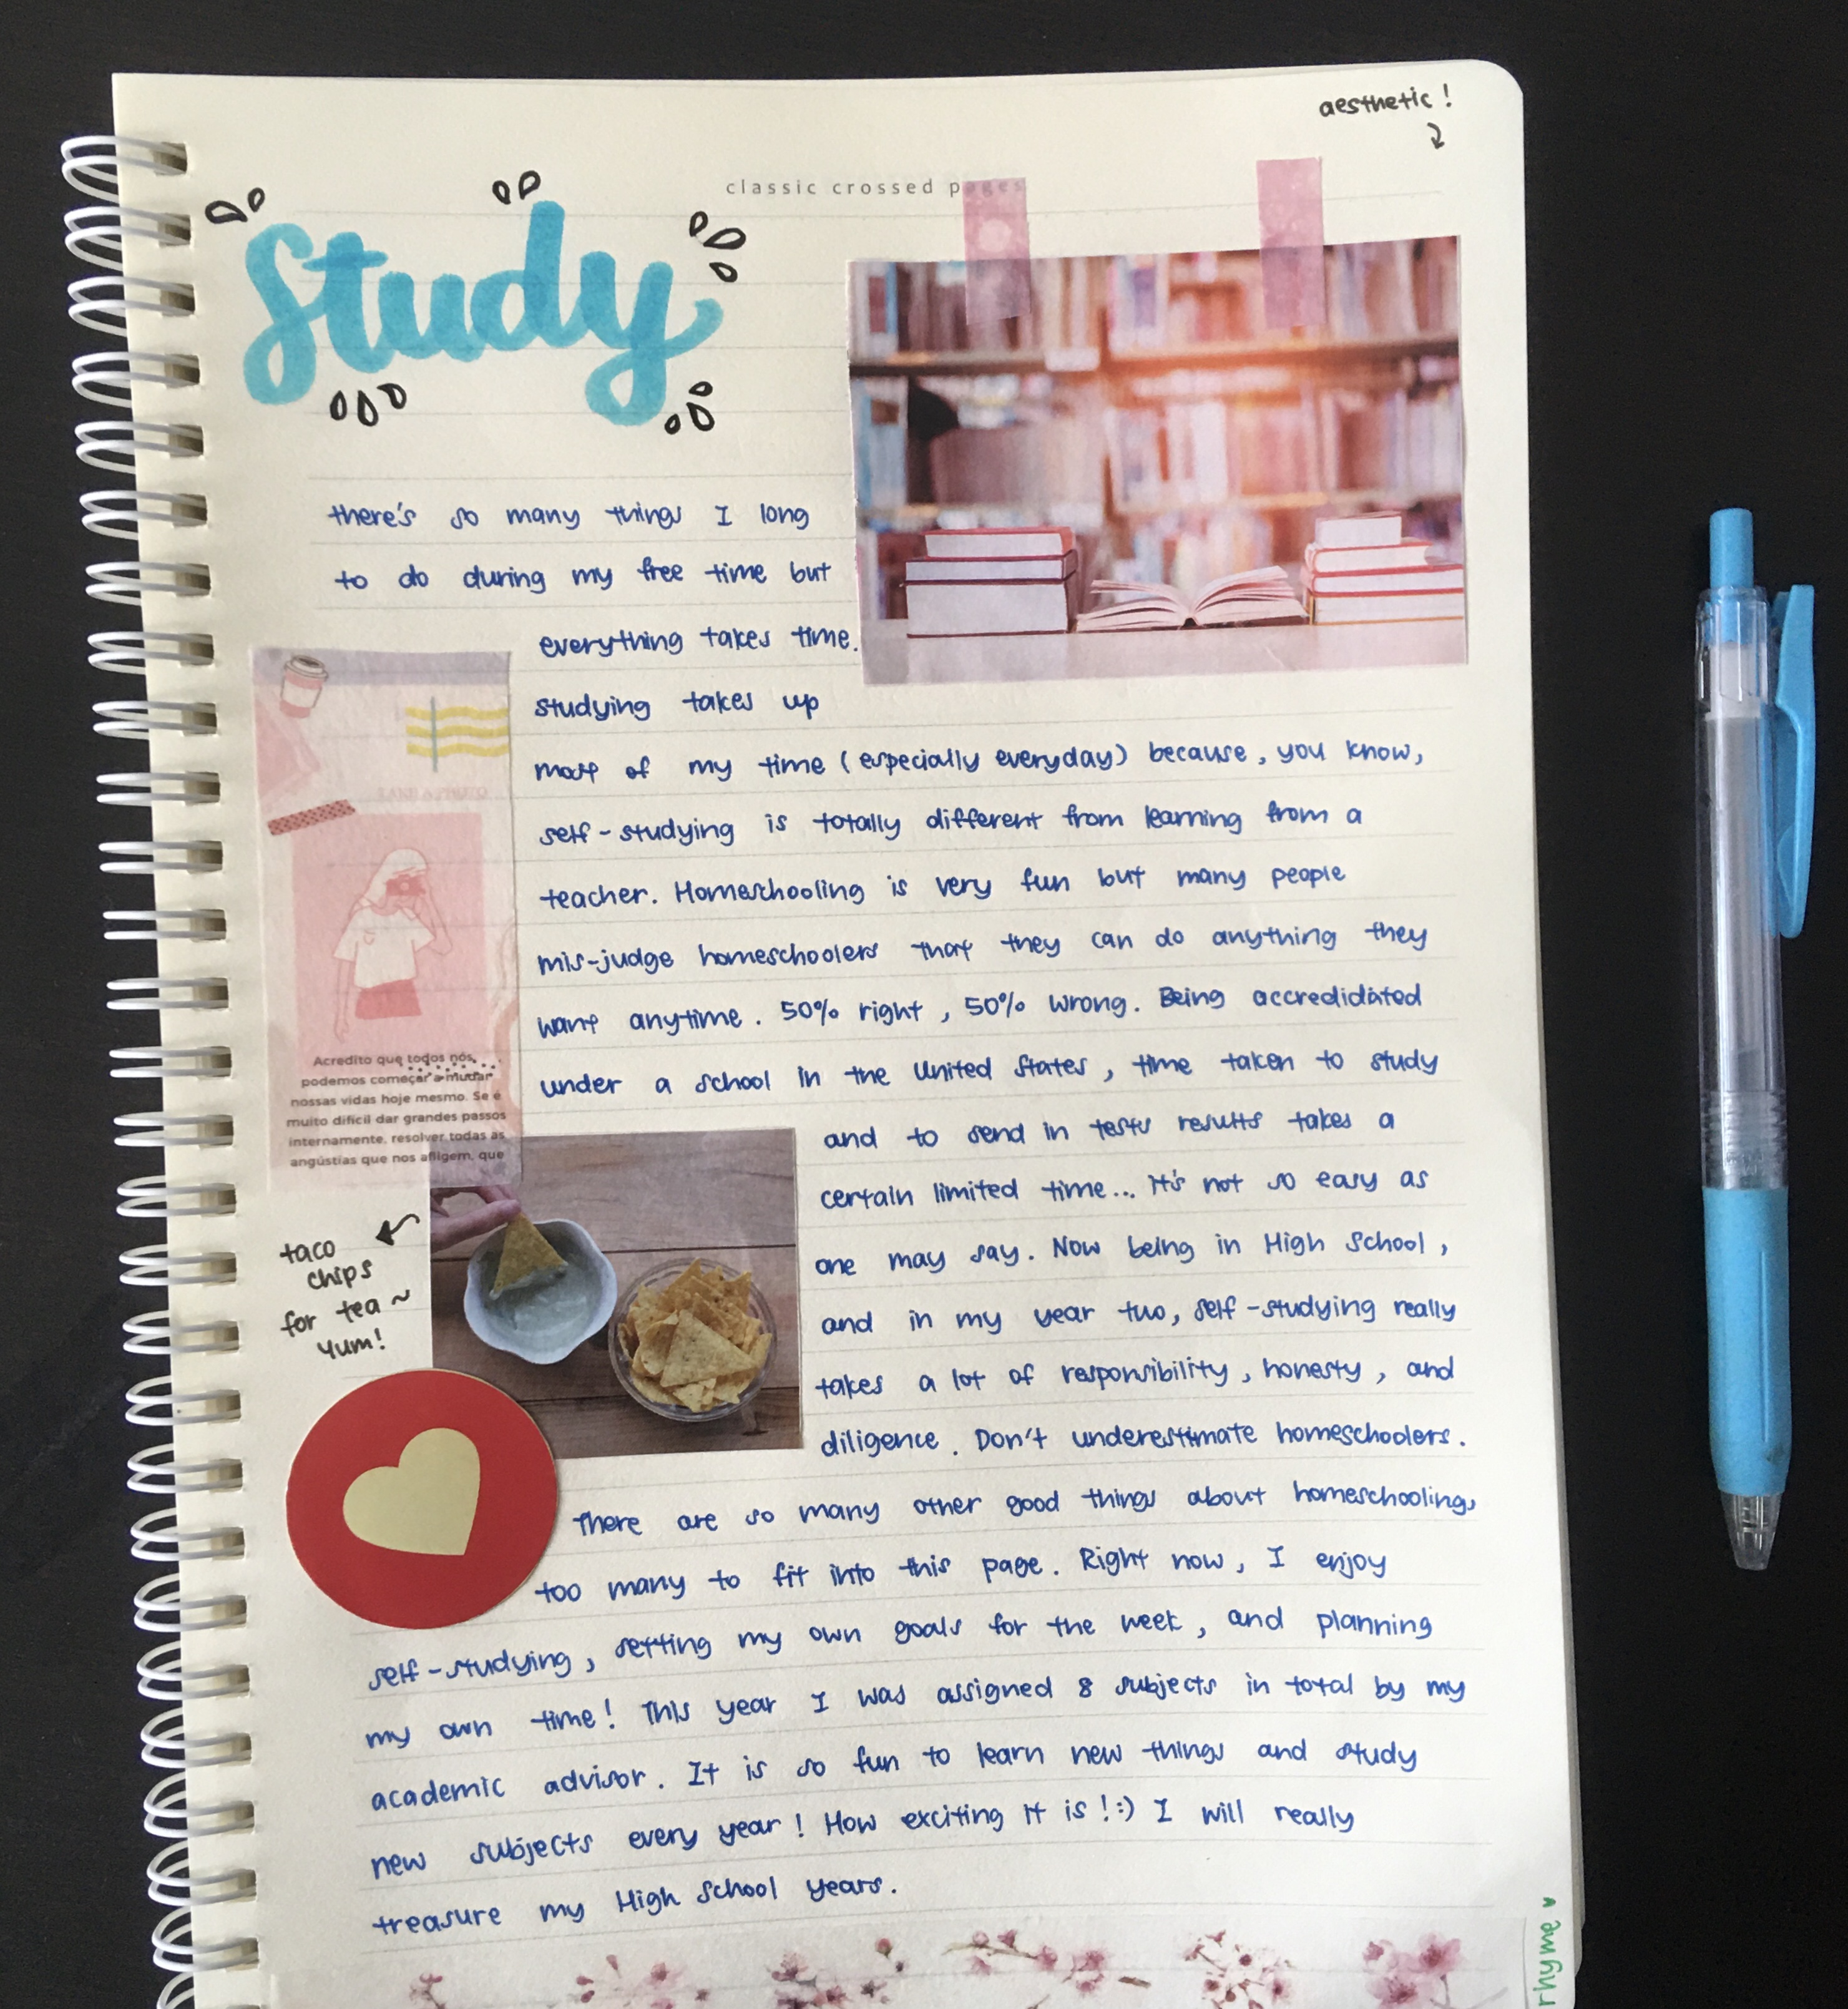 aesthetic!
classic crossed pages
Study
there's so many things I long
to do during my free time but
everything takes time.
studying takes up
most of my time (especially everyday) because, you know,
self-studying is totally different from learning from a
teacher. Homeschooling is very fun but many people
mis-judge homeschoolers that they can do anything they
want anytime. 50% right, 50% wrong. Being accredidated
under a school in the United States, time taken to study
and to send in tests results takes a
certain limited time... It's not so easy as
one may say. Now being in High School,
and in my year two, self-studying really
takes a lot of responsibility, honesty, and
diligence. Don't underestimate homeschoolers.
There are so many other good things about homeschooling,
too many to fit into this page. Right now, I enjoy
self-studying, setting my own goals for the week, and planning
my own time! This year I was assigned 8 subjects in total by my
academic advisor. It is so fun to learn new things and study
new subjects every year! How exciting it is!:) I will really
treasure my High School years.
Acredito que todos nós
podemos começar a mudar
nossas vidas hoje mesmo. Se é
muito difícil dar grandes passos
internamente, resolver todas as
angústias que nos afligem, que
taco
chips
for tea ~
yum!
rhyme